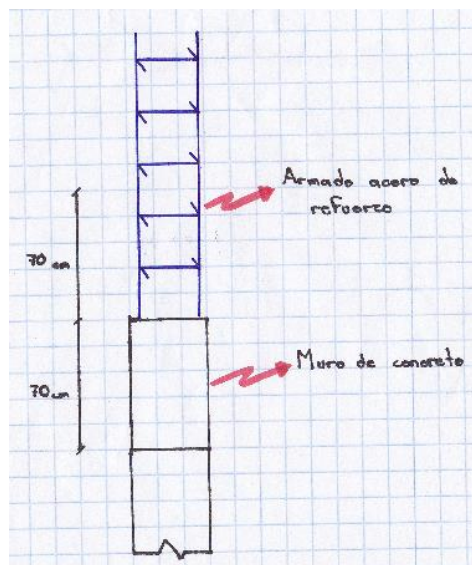 Armado acero de
refuerzo
70 cm
Muro de concreto
70 cm